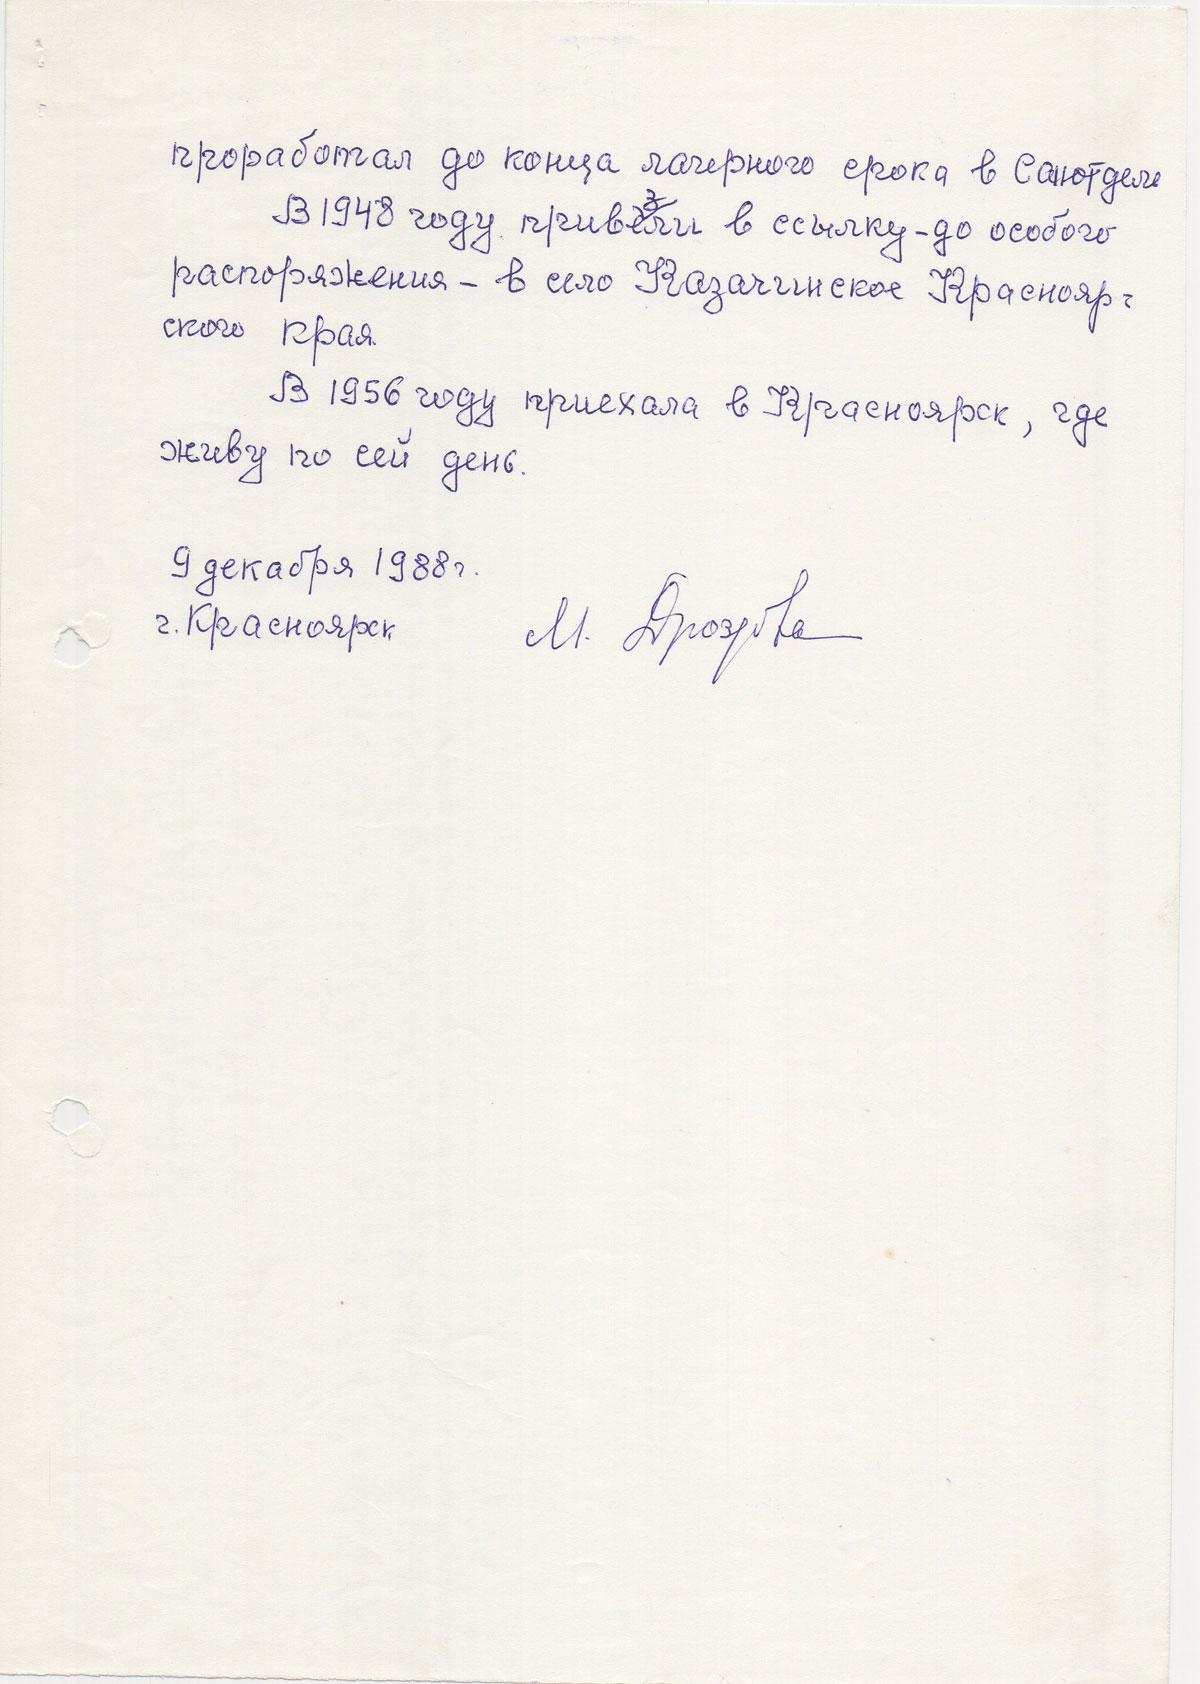 проработал до конца лагерного срока в Санотделе
В 1948 году привезли в ссылку - до особого
распоряжения - в село Казачинское Краснояр-
ского края.
В 1956 году приехала в Красноярск, где
живу по сей день.
9 декабря 1988 г.
г. Красноярск
М. Дроздова